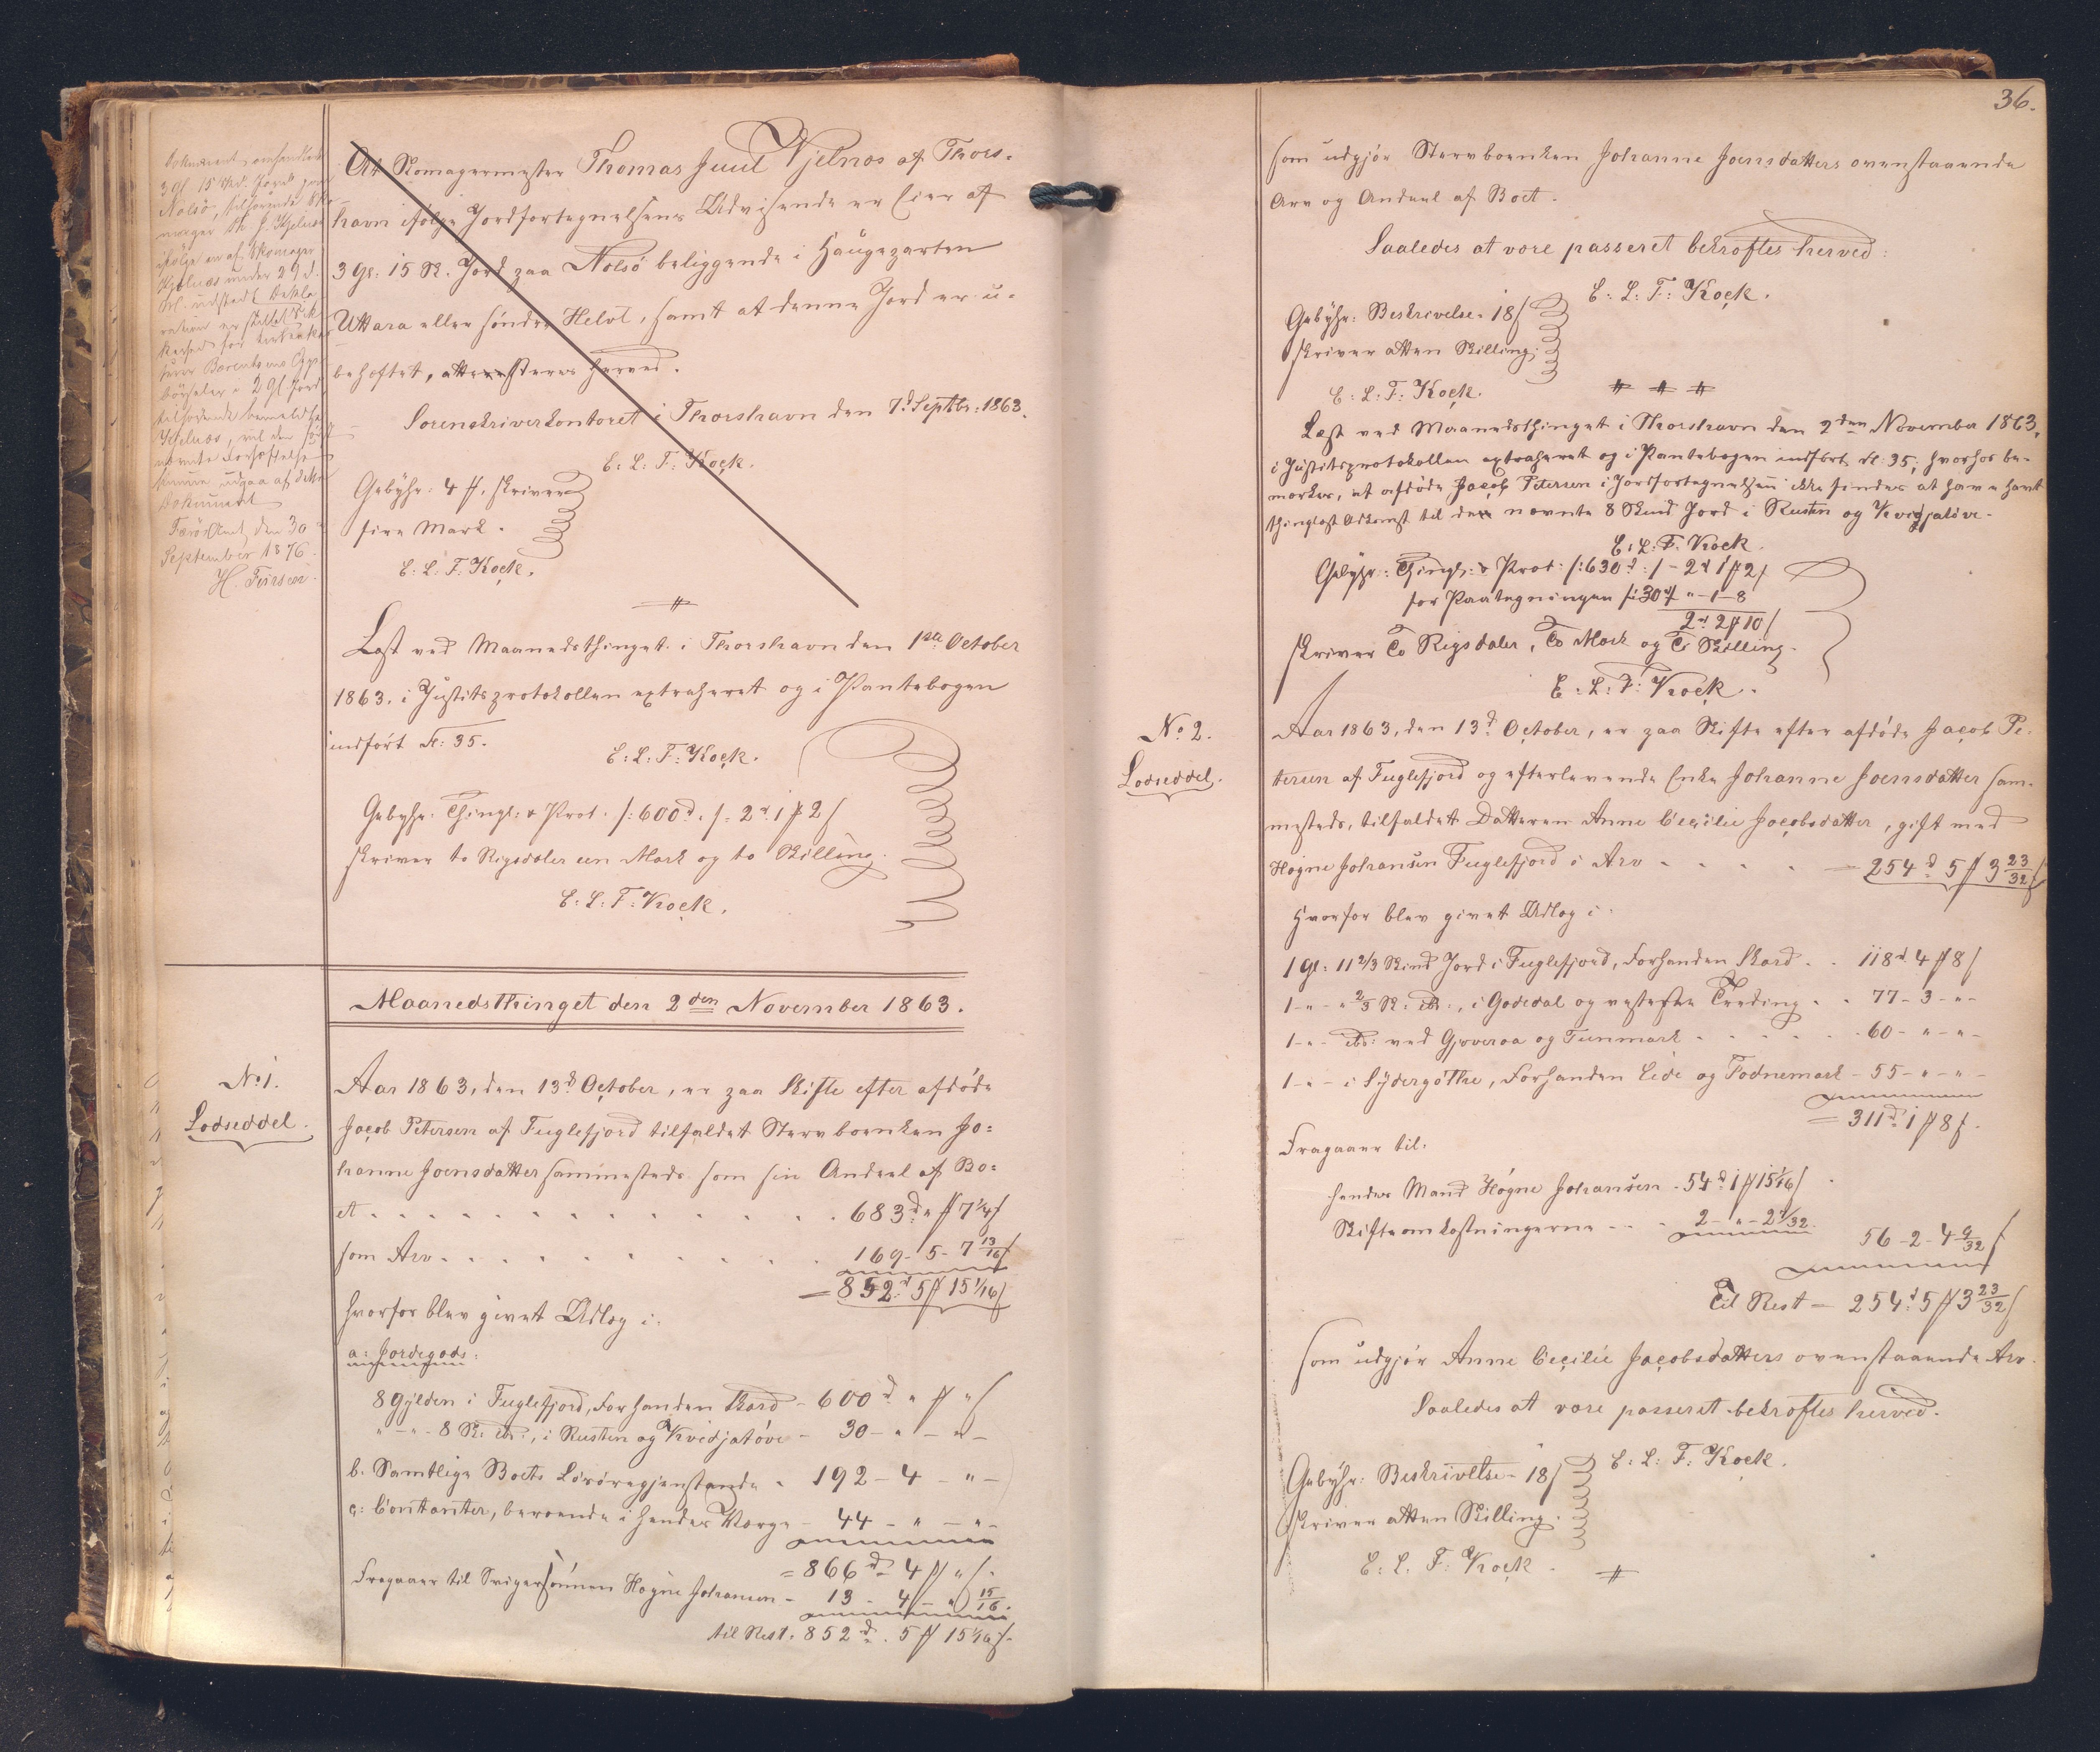 Dokumentet omhandlede
3 Gl. 15 Skd. Jord paa
Nolsö, tilhörende Sko-
mager Th. J. Kjelnæs
ifølge en af Skomager
Kjelnæs under 29 d.
M. udstedt Dekla-
ration er stillet til Sik-
kerhed for
Barentsens
i 2 Gl. Jord
tilhörende bemeldte
Kjelnæs, vil den
nævnte Forhæftelse
kunne udgaa af dette
Dokument
Færö Amt, den 30
September 1876.
H. Finsen.
At Skomagermester Thomas Juul Kjelnæs af Thors-
havn ifølge Jordfortegnelsens Udvisende er Eier af
3 Gl: 15 Sk. Jord paa Nolsö beliggende i Haugegarten
Uttara eller söndre Helvt, samt at denne Jord er u-
behæftet, attesteres herved.
Sorenskriverkontoret i Thorshavn den 7d Septbr: 1863.
E: L: F: Kock.
Gebyhr: 4 ℳ, skriver
fire Mark.
E: L: F: Kock.
Læst ved Maanedsthinget i Thorshavn den 1ste October
1863, i Justitsprotokollen extraheret og i Pantebogen
indfört Fl: 35.
E: L: F: Kock.
Gebyhr: Thingl: & Prot. /: 600d. /: 2d 1 ℳ 2 ß
skriver to Rigsdaler een Mark og to Skilling.
E: L: F: Kock.
Maanedsthinget den 2den November 1863.
No 1.
Lodseddel.
Aar 1863, den 13d October, er paa Skifte efter afdöde
Jacob Petersen af Fuglefjord tilfaldet Stervboenken Jo=
hanne Joensdatter sammesteds som sin Andeel af Bo=
et . . . . . . . . . . . . . 683d " ℳ 7 1/4 ß
som Arv . . . . . . . . . . . 169 - 5 - 7 13/16 ß
= 852d 5 ℳ 15 1/16 ß
hvorfor blev givet Udlæg i:
a: Jordegods:
8 Gylden i Fuglefjord, Forhanden Skard - 600d " ℳ " ß
" - " - 8 Sk: do:, i Rusten og Kvidjatöve - 30 - " - " -
b. Samtlige Boets Lösöregjenstande - 192 - 4 - " -
c: Contanter, beroende i hendes Værge - 44 - " - " -
= 866d 4 ℳ " ß.
Fragaaer til Svigersönnen Högne Johansen - 13 - 4 - " 15/16.
til Rest. 852d. 5 ℳ 15 1/16 ß.
36.
som udgjör Stervboenken Johanne Joensdatters ovenstaaende
Arv og Andeel af Boet.
Saaledes at være passeret bekræftes herved:
E: L: F: Kock.
Gebyhr: Beskrivelse - 18 ß
skriver atten Skilling.
E: L: F: Kock.
Læst ved Maanedsthinget i Thorshavn den 2den November 1863,
i Justitsprotokollen extraheret og i Pantebogen indfört Fl: 35, hvorhos be-
mærkes, at afdöde Jacob Petersen i Jordfortegnelsen ikke findes at have havt
thinglæst Adkomst til de nævnte 8 Skind Jord i Rusten og Kvidjatöve.
E: L: F. Kock.
Gebyhr: Thingl: & Prot: /: 630d: / - 2d 1 ℳ 2 ß
for Paategningen /: 30 ℳ " - 1 - 8
2d 2 ℳ 10 ß
skriver To Rigsdaler, To Mark og Ti Skilling.
E: L: F: Kock.
No 2.
Lodseddel.
Aar 1863, den 13d October, er paa Skifte efter afdöde Jacob Pe-
tersen af Fuglefjord og efterlevende Enke Johanne Joensdatter sam-
mesteds, tilfaldet Datteren Anne Cecilie Jacobsdatter, gift med
Högne Johansen Fuglefjord i Arv - - - - - 254d 5 ℳ 3 23/32 ß
Hvorfor blev givet Udlæg i:
1 Gl: 11 2/3 Skind Jord i Fuglefjord, Forhanden Skard . . 118d 4 ℳ 8 ß
1 - " - " 2/3 Sk: do:, i Godedal og vesterste Treding . . 77 - 3 - " -
1 - " - do: ved Gjoveraa og Tunmark . . . . . . 60 - " - " -
1 - " - i Sydergöthe, Forhanden Eide og Fodnemark - 55 - " - " -
= 311d 1 ℳ 8 ß.
Fragaaer til.
hendes Mand Högne Johansen . 54d 1 ℳ 15 1/16 ß
Skifteomkostningerne - - - 2 - " - 2 7/32.
56 - 2 - 4 9/32 ß
Til Rest = 254d 5 ℳ 3 23/32 ß
som udgjör Anne Cecilie Jacobsdatters ovenstaaende Arv.
Saaledes at være passeret bekræftes herved.
E: L: F: Kock.
Gebyhr: Beskrivelse - 18 ß
skriver atten Skilling.
E: L: F: Kock.